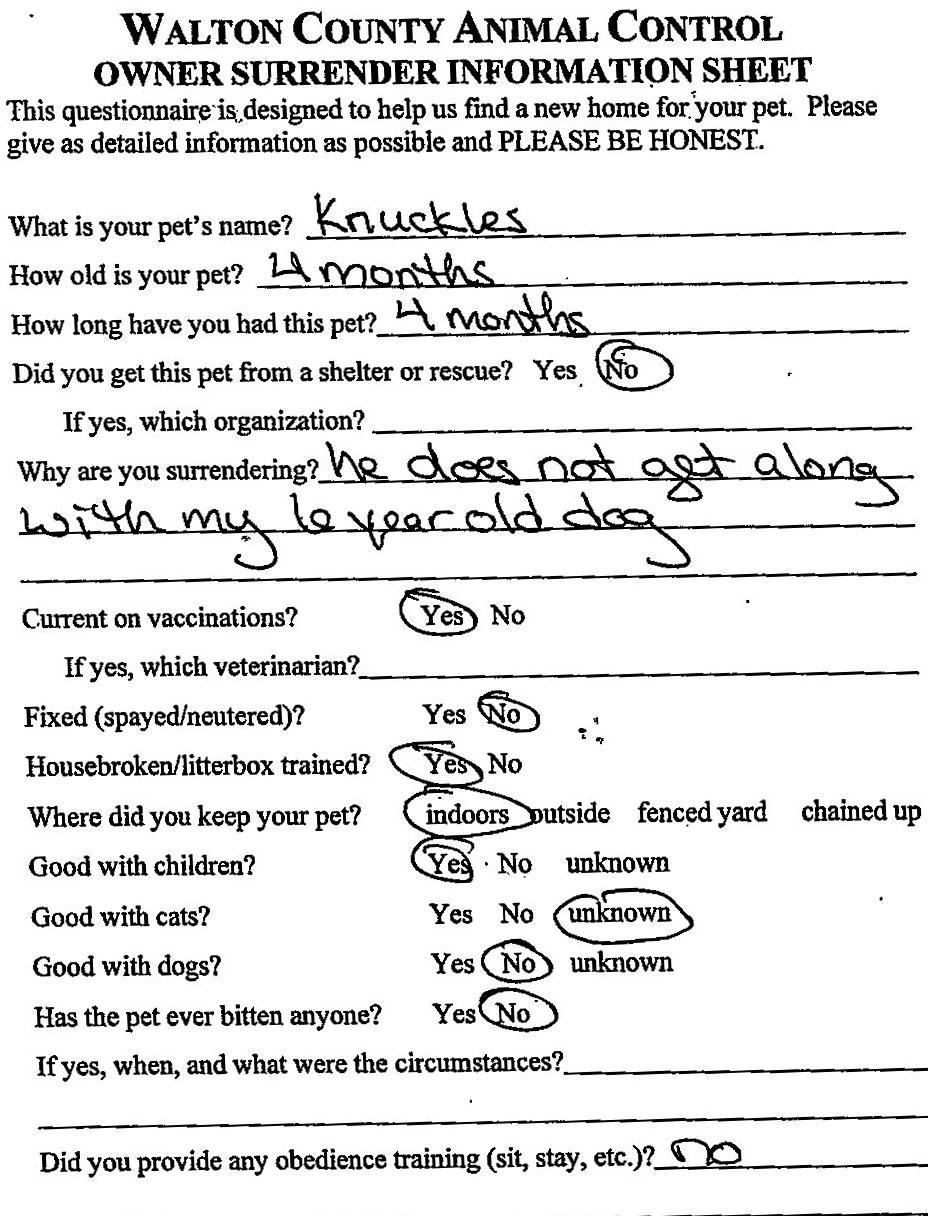 WALTON COUNTY ANIMAL CONTROL
OWNER SURRENDER INFORMATION SHEET
This questionnaire is designed to help us find a new home for your pet. Please
give as detailed information as possible and PLEASE BE HONEST.
What is your pet's name? Knuckles
How old is your pet? 4 months
How long have you had this pet? 4 months
Did you get this pet from a shelter or rescue? Yes No
If yes, which organization?
Why are you surrendering? he does not get along
with my 6 year old dog
Current on vaccinations? Yes No
If yes, which veterinarian?
Fixed (spayed/neutered)? Yes No
Housebroken/litterbox trained? Yes No
Where did you keep your pet? indoors outside fenced yard chained up
Good with children? Yes No unknown
Good with cats? Yes No unknown
Good with dogs? Yes No unknown
Has the pet ever bitten anyone? Yes No
If yes, when, and what were the circumstances?
Did you provide any obedience training (sit, stay, etc.)? no